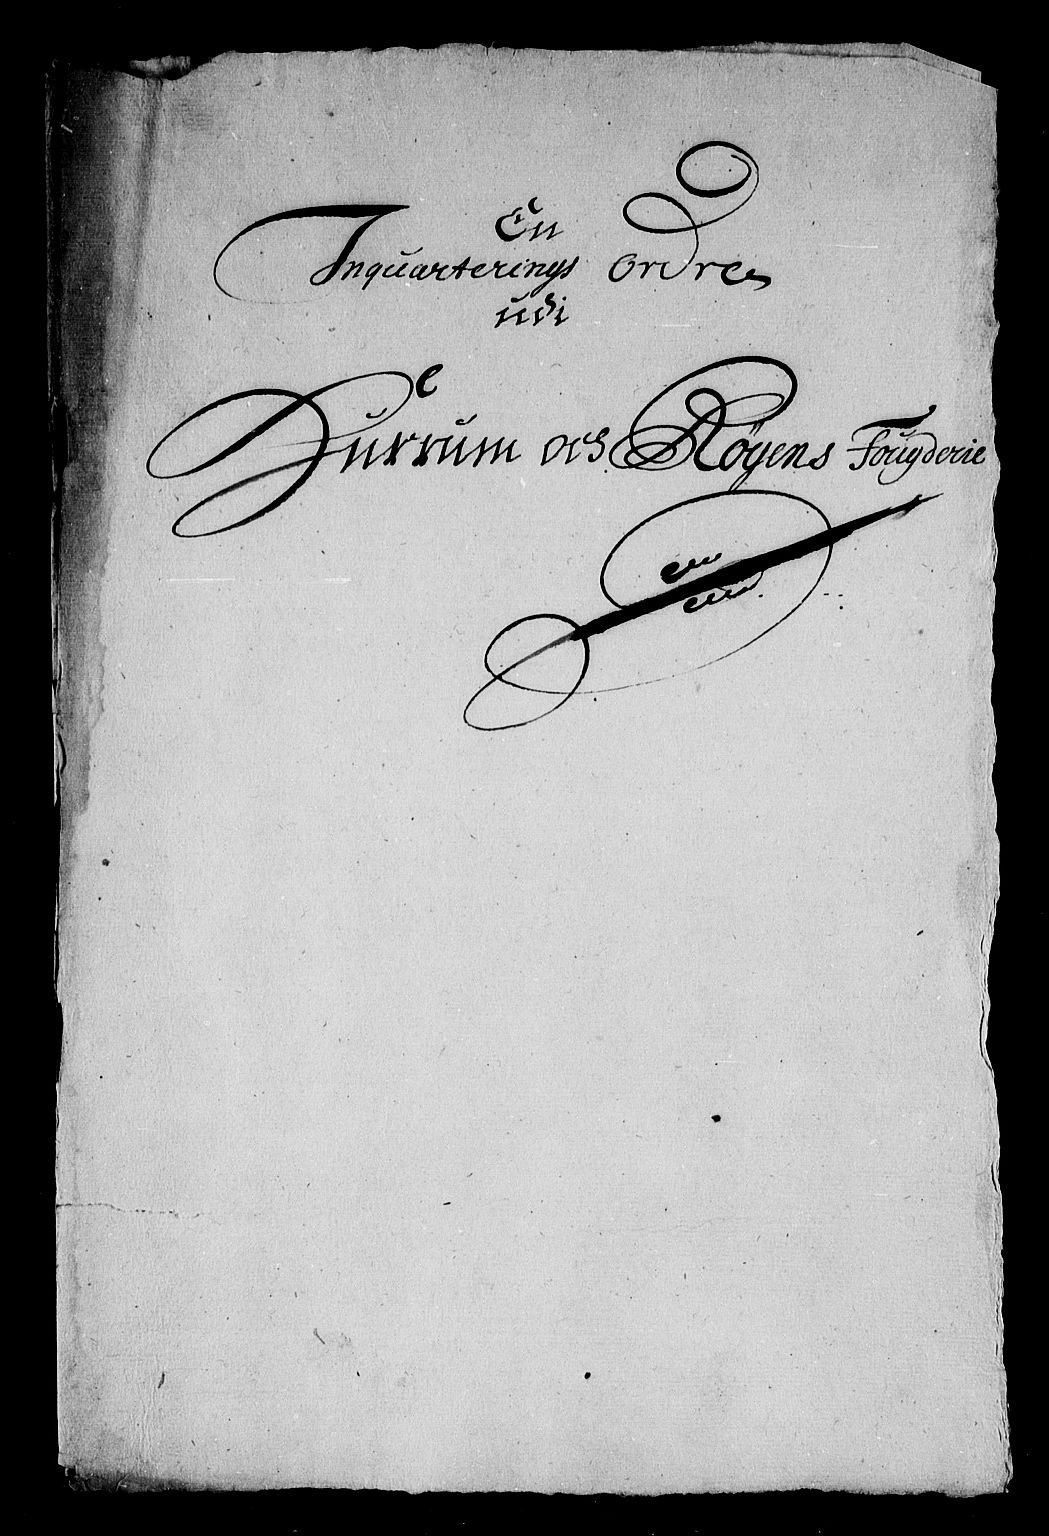 En
Inquarterings Ordre
udi
Hurrum och Röyens Fougderie